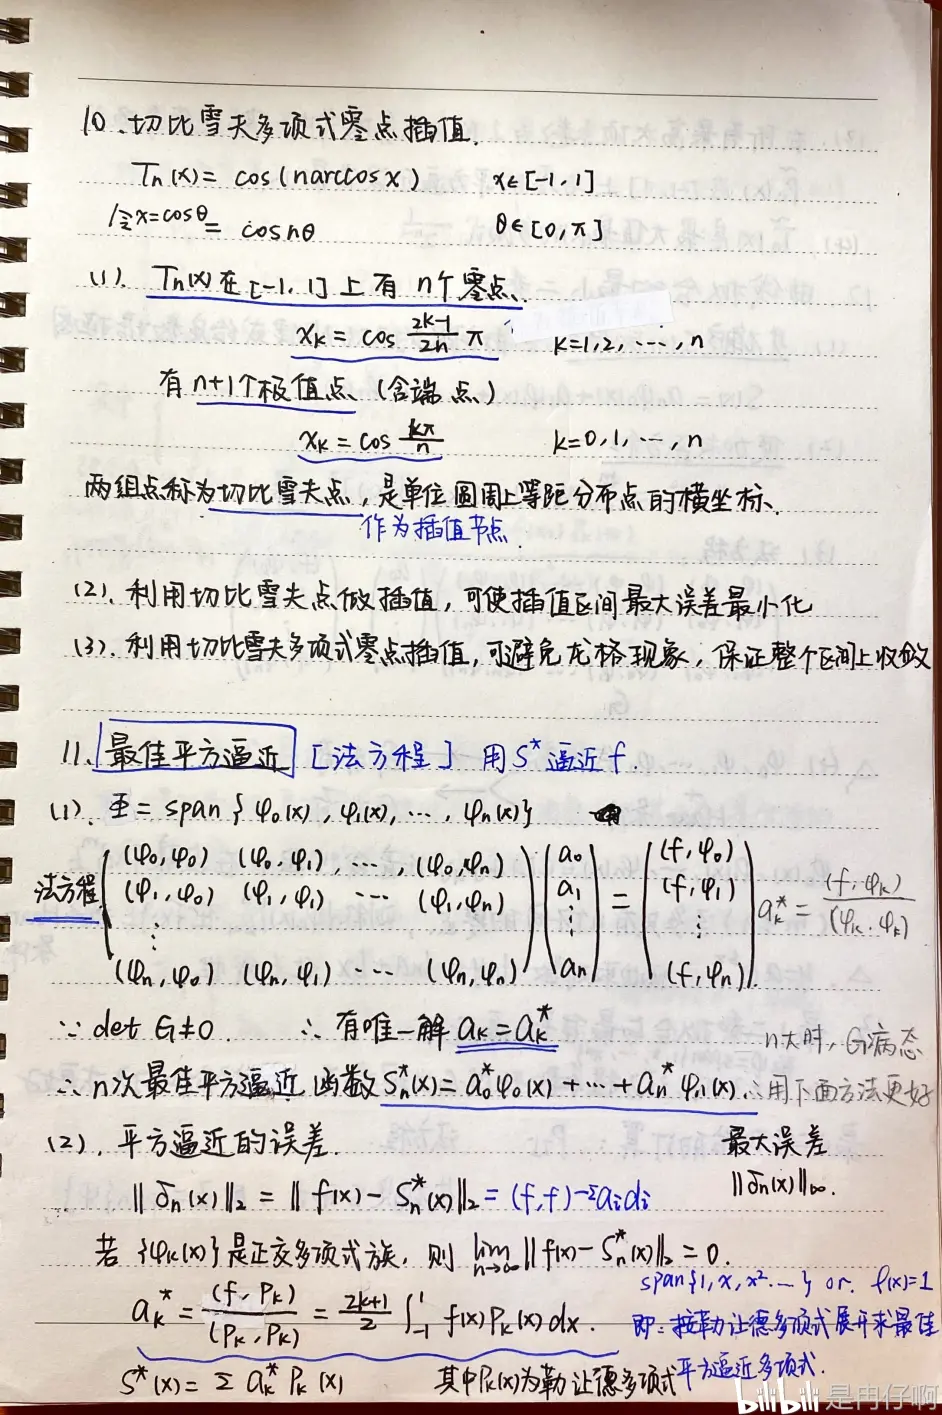 10、切比雪夫多项式零点插值.
Tn(x) = cos(narccosx) x∈[-1,1]
令x=cosθ = cosnθ θ∈[0,π]
(1). Tn(x)在[-1,1]上有n个零点、
xk = cos (2k-1)/(2n) π k=1,2,…,n
有n+1个极值点(含端点)
xk = cos kπ/n k=0,1,…,n
两组点称为切比雪夫点,是单位圆周上等距分布点的横坐标、
作为插值节点.
(2). 利用切比雪夫点做插值,可使插值区间最大误差最小化
(3). 利用切比雪夫多项式零点插值,可避免龙格现象,保证整个区间上收敛
11、最佳平方逼近 [法方程] 用S*逼近f.
(1). Φ = span{φ0(x), φ1(x), …, φn(x)}
法方程
(φ0,φ0) (φ0,φ1), … (φ0,φn) a0 (f,φ0)
(φ1,φ0) (φ1,φ1) … (φ1,φn) a1 = (f,φ1) ak* = (f,φk)/(φk,φk)
⋮ ⋮ ⋮
(φn,φ0) (φn,φ1) … (φn,φn) an (f,φn).
∵ det G≠0. ∴ 有唯一解 ak=ak* n大时,G病态
∴ n次最佳平方逼近函数Sn*(x)=a0*φ0(x)+…+an*φ1(x). ∴用下面方法更好
(2). 平方逼近的误差. 最大误差
||δn(x)||2 = ||f(x)-Sn*(x)||2 = (f,f)-Σaidi ||δn(x)||∞.
若{φk(x)}是正交多项式族,则 lim n→∞ ||f(x)-Sn*(x)||2 = 0.
span{1,x,x²…} or. f(x)=1
ak* = (f,Pk)/(Pk,Pk) = (2k+1)/2 ∫_{-1}^{1} f(x)Pk(x)dx. 即:按勒让德多项式展开求最佳
平方逼近多项式.
S*(x) = Σ ak* Pk(x) 其中Pk(x)为勒让德多项式
bilibili 是冉仔啊